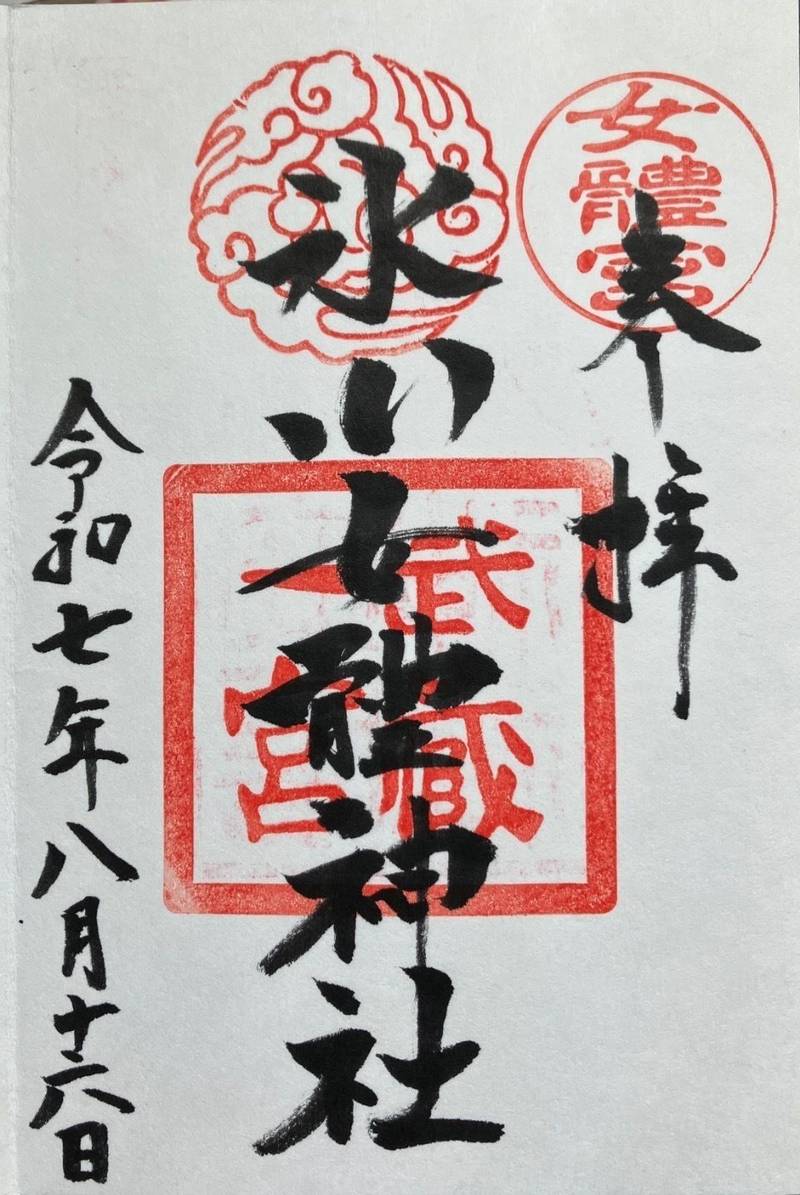 奉拝
女體宮
氷川女體神社
武蔵
一宮
令和七年八月十六日